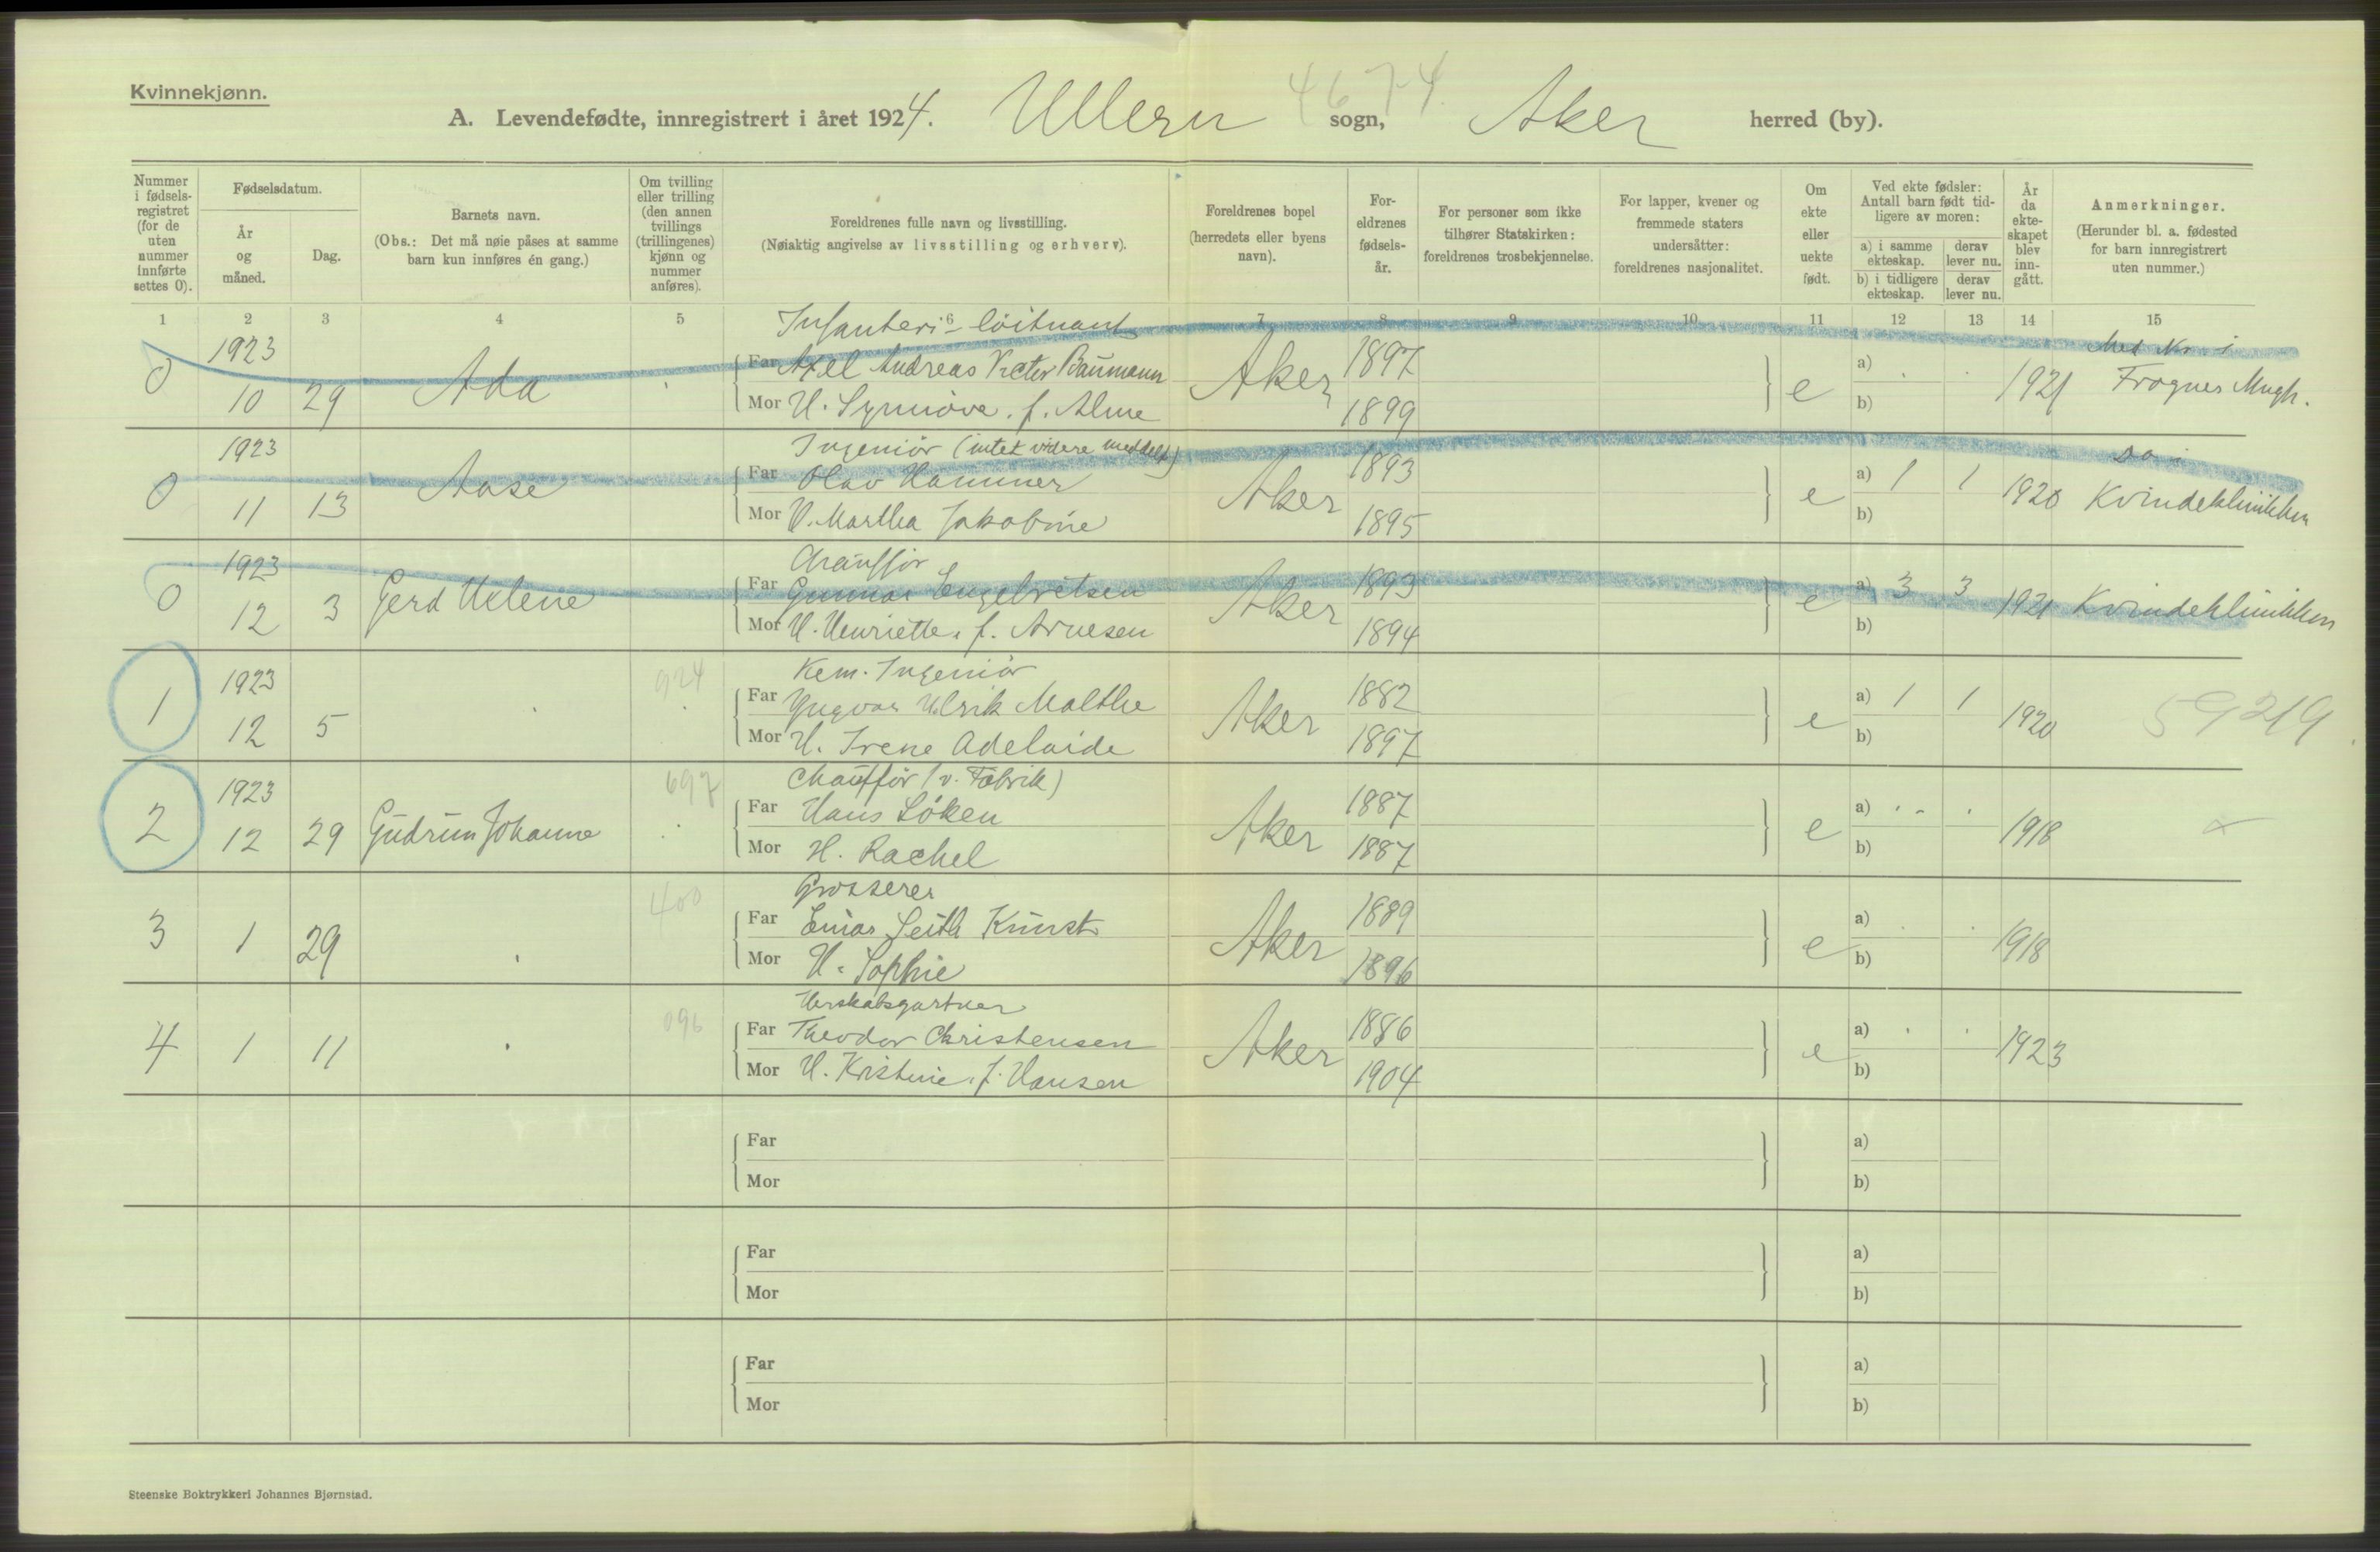 Kvinnekjønn.
A. Levendefødte, innregistrert i året 1924. Ullern sogn, Aker herred (by).
4674.
Nummer i fødsels-registret (for de uten nummer innførte settes 0).
Fødselsdatum.
År og måned.
Dag.
Barnets navn.
(Obs.: Det må nøie påses at samme barn kun innføres én gang.)
Om tvilling eller trilling (den annen tvillings (trillingenes) kjønn og nummer anføres).
Foreldrenes fulle navn og livsstilling.
(Nøiaktig angivelse av livsstilling og erhverv).
Foreldrenes bopel (herredets eller byens navn).
For-eldrenes fødsels-år.
For personer som ikke tilhører Statskirken: foreldrenes trosbekjennelse.
For lapper, kvener og fremmede staters undersåtter: foreldrenes nasjonalitet.
Om ekte eller uekte født.
Ved ekte fødsler: Antall barn født tid-ligere av moren:
a) i samme ekteskap. derav lever nu.
b) i tidligere ekteskap. derav lever nu.
År da ekte-skapet blev inn-gått.
Anmerkninger.
(Herunder bl. a. fødested for barn innregistrert uten nummer.)
1 2 3 4 5 6 7 8 9 10 11 12 13 14 15
Infanteri-löitnant
0 1923 10 29 Ada Far Axel Andreas Victor Baumann Aker 1897 e a) 1921 Med Nr. i Frogner Mngh.
Mor H. Synnöve. f. Alme 1899 b)
Ingeniör (intet videre meddelt)
0 1923 11 13 Aase Far Olav Hammer Aker 1893 e a) 1 1 1920 Do i Kvindeklinikken
Mor H. Martha Jakobine 1895 b)
Chaufför
0 1923 12 3 Gerd Helene Far Gunnar Engebretsen Aker 1893 e a) 3 3 1921 Kvindeklinikken
Mor H. Henriette. f. Arnesen 1894 b)
Kem. Ingeniör
1 1923 12 5 924 Far Yngvar Ulrik Malthe Aker 1882 e a) 1 1 1920 59219
Mor H. Irene Adelaide 1897 b)
Chaufför (v. Fabrik)
2 1923 12 29 Gudrun Johanne 697 Far Hans Löken Aker 1887 e a) 1918
Mor H. Rachel 1887 b)
Grosserer
3 1 29 400 Far Einar Seith Kunst Aker 1889 e a) 1918
Mor H. Sophie 1896 b)
Herskabsgartner
4 1 11 096 Far Theodor Christensen Aker 1886 e a) 1923
Mor H. Kristine. f. Hansen 1904 b)
Far a)
Mor b)
Far a)
Mor b)
Far a)
Mor b)
Steenske Boktrykkeri Johannes Bjørnstad.